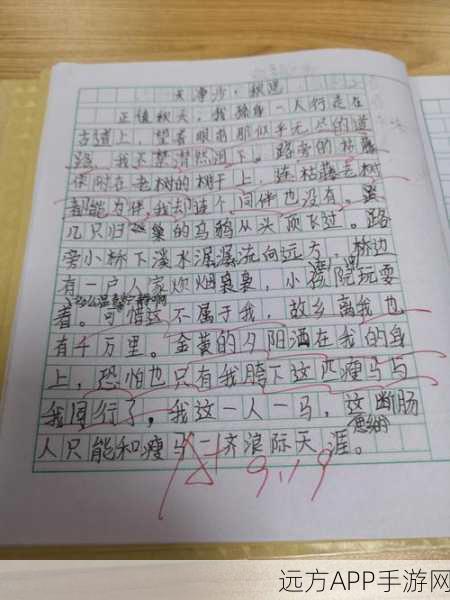 天净沙·秋思
正值秋天，我独自一人行走在
古道上，望着眼前那似乎无尽的道
路，我不禁潸然泪下。路旁的枯藤
依附在老树的树干上，连枯藤老树
都能为伴，我却连个同伴也没有。
几只归巢的乌鸦从头顶飞过。路
旁小桥下淡水潺潺流向远方，桥边
有一户人家炊烟袅袅，小孩院玩耍
着。可惜这不属于我，故乡离我也
有千万里。金黄的夕阳洒在我的身
上，恐怕也只有我胯下这匹瘦马与
我同行了，我这一人一马，这断肠
人只能和瘦马一齐浪际天涯。
9.19
远方APP手游网